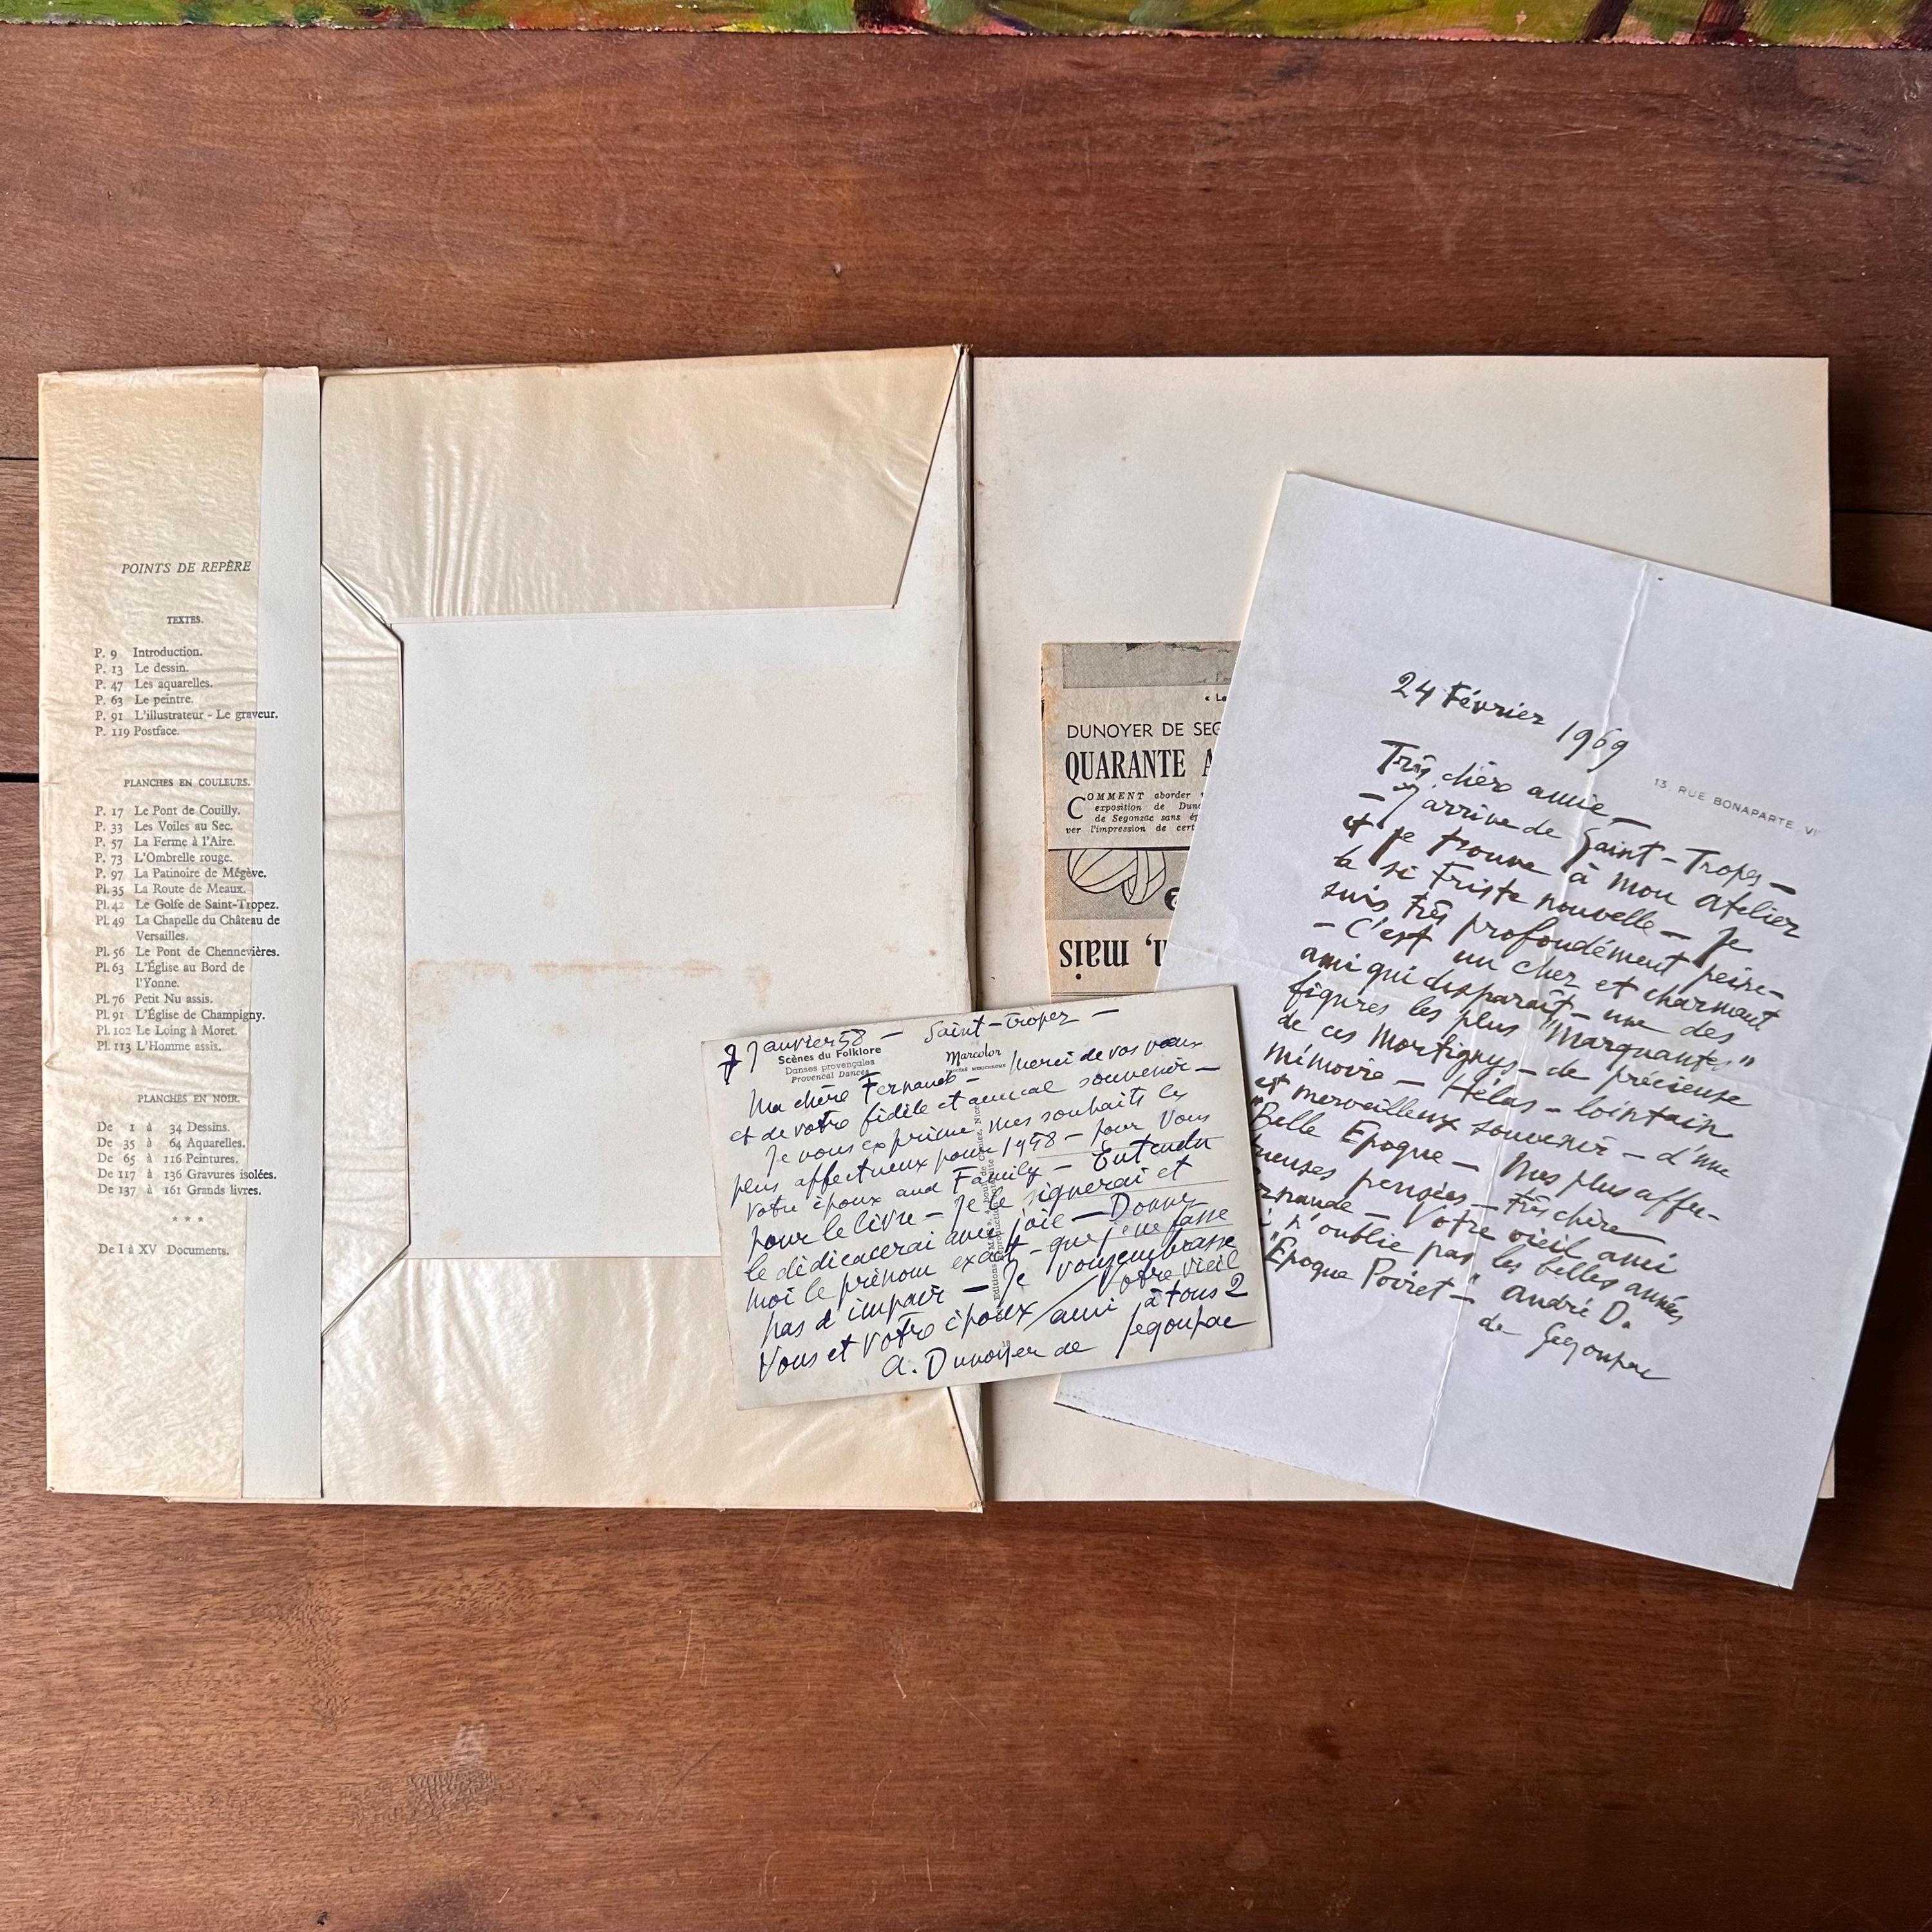 POINTS DE REPÈRE
TEXTES.
P. 9 Introduction.
P. 13 Le dessin.
P. 47 Les aquarelles.
P. 63 Le peintre.
P. 91 L'illustrateur - Le graveur.
P. 119 Postface.
PLANCHES EN COULEURS.
P. 17 Le Pont de Couilly.
P. 33 Les Voiles au Sec.
P. 57 La Ferme à l'Aire.
P. 73 L'Ombrelle rouge.
P. 97 La Patinoire de Mégève.
Pl. 35 La Route de Meaux.
Pl. 42 Le Golfe de Saint-Tropez.
Pl. 49 La Chapelle du Château de
Versailles.
Pl. 56 Le Pont de Chennevières.
Pl. 63 L'Église au Bord de
l'Yonne.
Pl. 76 Petit Nu assis.
Pl. 91 L'Église de Champigny.
Pl. 102 Le Loing à Moret.
Pl. 113 L'Homme assis.
PLANCHES EN NOIR.
De 1 à 34 Dessins.
De 35 à 64 Aquarelles.
De 65 à 116 Peintures.
De 117 à 136 Gravures isolées.
De 137 à 161 Grands livres.
* * *
De I à XV Documents.
« La
DUNOYER DE SEG
QUARANTE A
COMMENT aborder
exposition de Duno
de Segonzac sans ép
ver l'impression de cert
mais
Janvier 58 - Saint-Tropez -
Scènes du Folklore
Danses provençales
Provencal Dances
Marcolor
Ma chère Fernande - Merci de vos vœux
et de votre fidèle et amical souvenir -
Je vous exprime mes souhaits les
plus affectueux pour 1958 - pour Vous
votre époux and Family - Entendu
pour le livre - Je le signerai et
le dédicacerai avec joie - Donnez
moi le prénom exact - que je ne fasse
pas d'impair - Je vous embrasse
Vous et votre époux / Votre vieil
ami à tous 2
A. Dunoyer de Segonzac
24 Février 1969
13, RUE BONAPARTE VIᵉ
Très chère amie -
- J'arrive de Saint-Tropez -
et je trouve à mon atelier
la si triste nouvelle - Je
suis très profondément peiné -
- C'est un cher et charmant
ami qui disparaît - une des
figures les plus "Marquantes"
de ces Mortignys - de précieuse
mémoire - Hélas - lointain
et merveilleux souvenir - d'une
"Belle Epoque - Mes plus affec-
tueuses pensées - Très chère
Fernande - Votre vieil ami
qui n'oublie pas les belles années
"Epoque Poiret" - André D.
de Segonzac